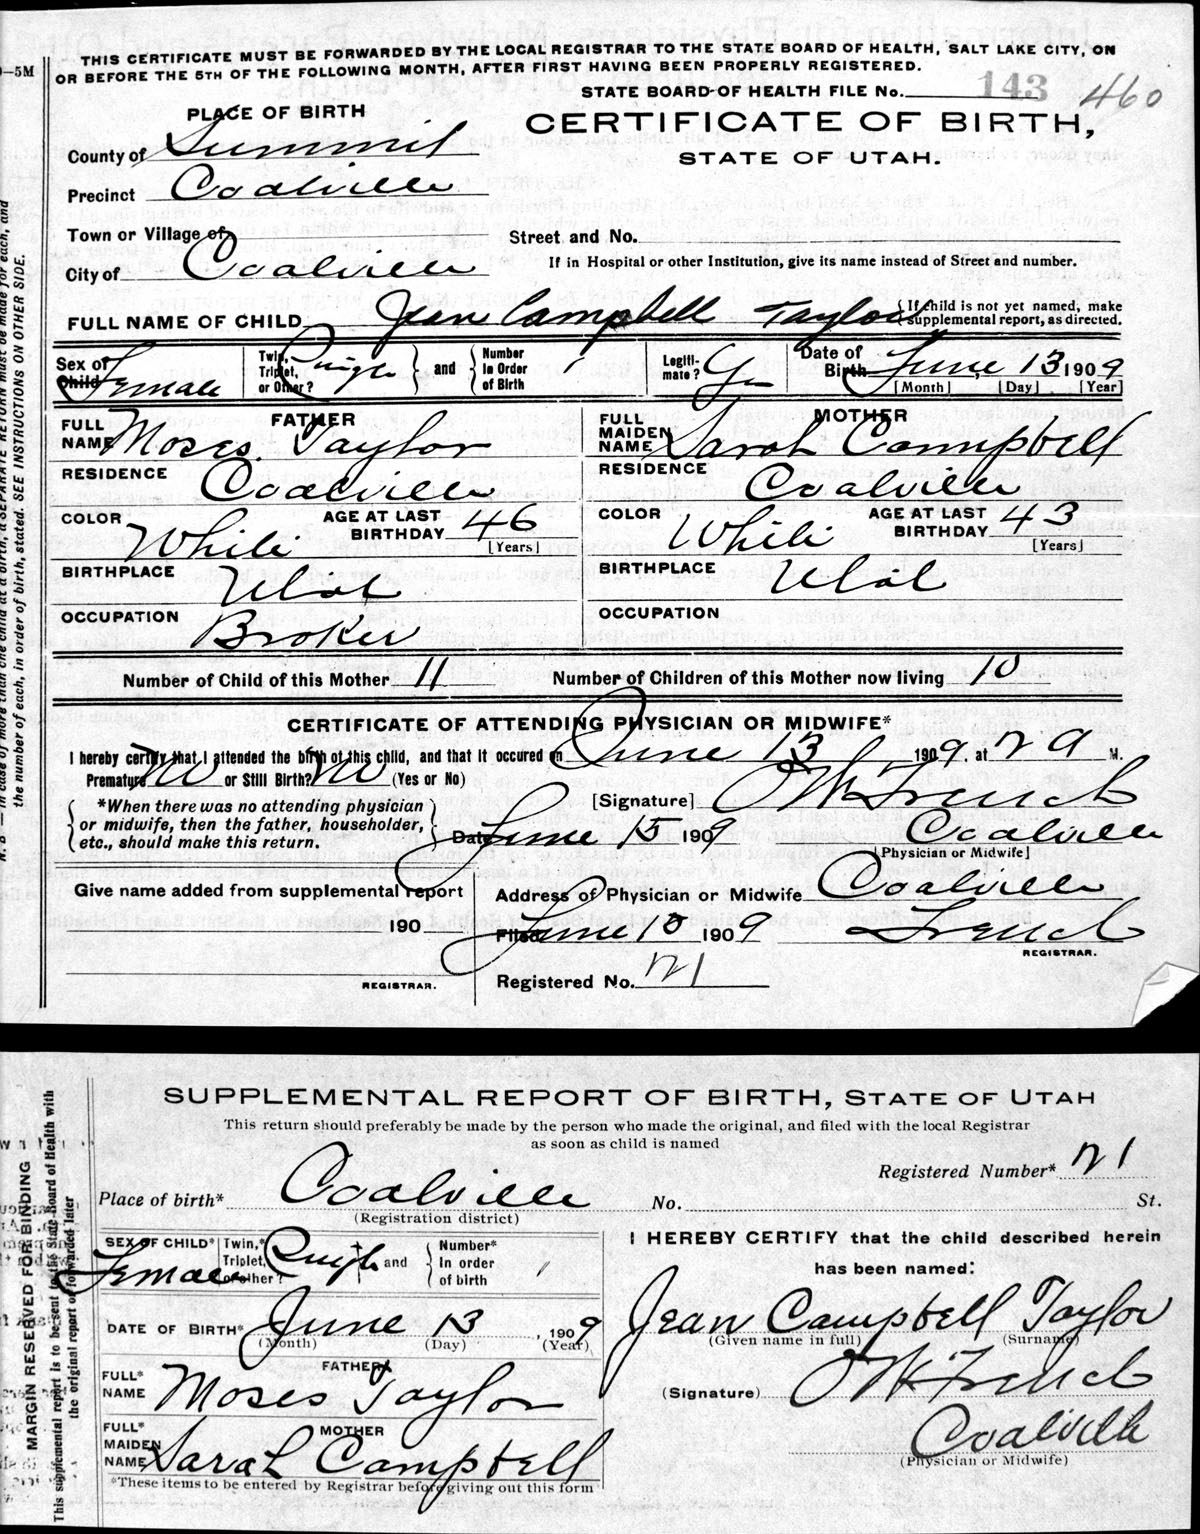 THIS CERTIFICATE MUST BE FORWARDED BY THE LOCAL REGISTRAR TO THE STATE BOARD OF HEALTH, SALT LAKE CITY, ON
OR BEFORE THE 5TH OF THE FOLLOWING MONTH, AFTER FIRST HAVING BEEN PROPERLY REGISTERED.
–5M
STATE BOARD OF HEALTH FILE No. 143 460
PLACE OF BIRTH
CERTIFICATE OF BIRTH,
County of Summit
STATE OF UTAH.
Precinct Coalville
Town or Village of
Street and No.
City of Coalville
If in Hospital or other Institution, give its name instead of Street and number.
FULL NAME OF CHILD Jean Campbell Taylor { If child is not yet named, make supplemental report, as directed.
Sex of Child Female Twin, Triplet, or Other? Single } and { Number In Order of Birth 1 Legitimate? Yes Date of Birth June 13 1909
[Month] [Day] [Year]
FATHER MOTHER
FULL NAME Moses Taylor
FULL MAIDEN NAME Sarah Campbell
RESIDENCE Coalville
RESIDENCE Coalville
COLOR White AGE AT LAST BIRTHDAY 46 [Years]
COLOR White AGE AT LAST BIRTHDAY 43 [Years]
BIRTHPLACE Utah
BIRTHPLACE Utah
OCCUPATION Broker
OCCUPATION
Number of Child of this Mother 11 Number of Children of this Mother now living 10
CERTIFICATE OF ATTENDING PHYSICIAN OR MIDWIFE*
I hereby certify that I attended the birth of this child, and that it occured on June 13 1909, at 2 a M.
Premature No or Still Birth? No (Yes or No)
[Signature] French
*When there was no attending physician
or midwife, then the father, householder,
etc., should make this return.
Date June 15 1909 Coalville
[Physician or Midwife]
Give name added from supplemental report
190
REGISTRAR.
Address of Physician or Midwife Coalville
Filed June 1909 French
REGISTRAR.
Registered No. 21
In case of more than one child at a birth, a SEPARATE RETURN must be made for each, and
the number of each, in order of birth, stated. SEE INSTRUCTIONS ON OTHER SIDE.
SUPPLEMENTAL REPORT OF BIRTH, STATE OF UTAH
This return should preferably be made by the person who made the original, and filed with the local Registrar
as soon as child is named
Registered Number* 21
Place of birth* Coalville No. St.
(Registration district)
SEX OF CHILD* Female Twin,* Triplet, or other? Single and { Number* In order of birth 1
I HEREBY CERTIFY that the child described herein
has been named:
DATE OF BIRTH* June 13, 1909
(Month) (Day) (Year)
Jean Campbell Taylor
(Given name in full) (Surname)
FATHER
FULL* NAME Moses Taylor
(Signature) French
MOTHER
FULL* MAIDEN NAME Sarah Campbell
Coalville
(Physician or Midwife)
*These items to be entered by Registrar before giving out this form
MARGIN RESERVED FOR BINDING
This supplemental report is to be sent to the State Board of Health with
the original report or forwarded later